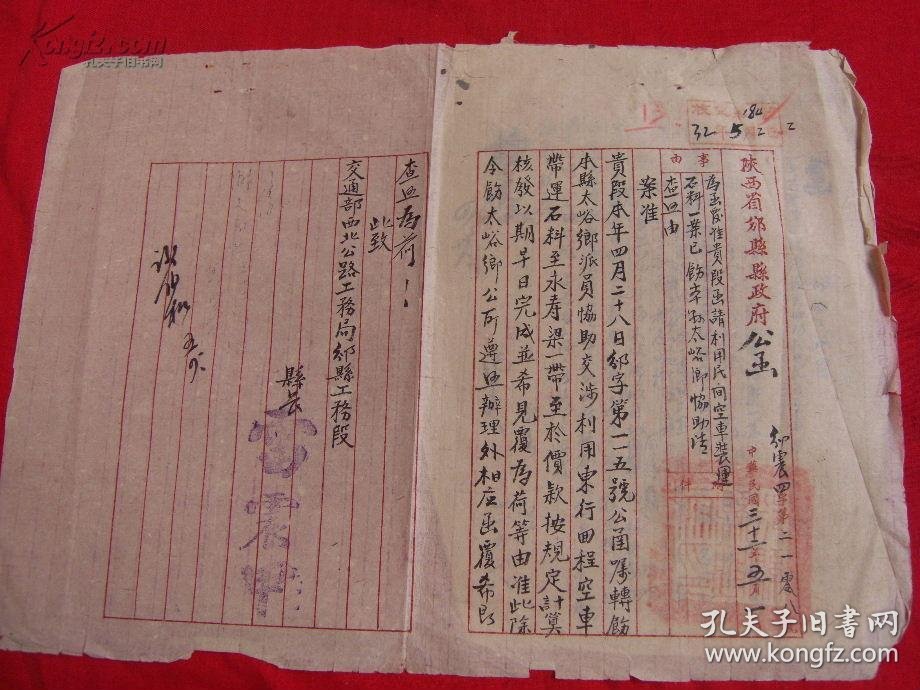 陝西省邠縣縣政府公函
邠震四字第二一
中華民國三十二年五月一
事由
為函覆准貴段函請利用民间空車装運
石料一案已飭本縣太峪鄉協助请
查照由
案准
貴段本年四月二十八日邠字第一二五號公函囑轉飭
本縣太峪鄉派員協助交涉利用東行回程空車
帶運石料至永寿梁一帶至於價款按規定計算
核發以期早日完成並希見覆為荷等由准此除
令飭太峪鄉公所遵照辦理外相应函覆希即
查照為荷！
此致
交通部西北公路工務局邠縣工務段
縣長
32 5 2
184
孔夫子旧书网
www.kongfz.com
Kongfz.com
孔夫子旧书网